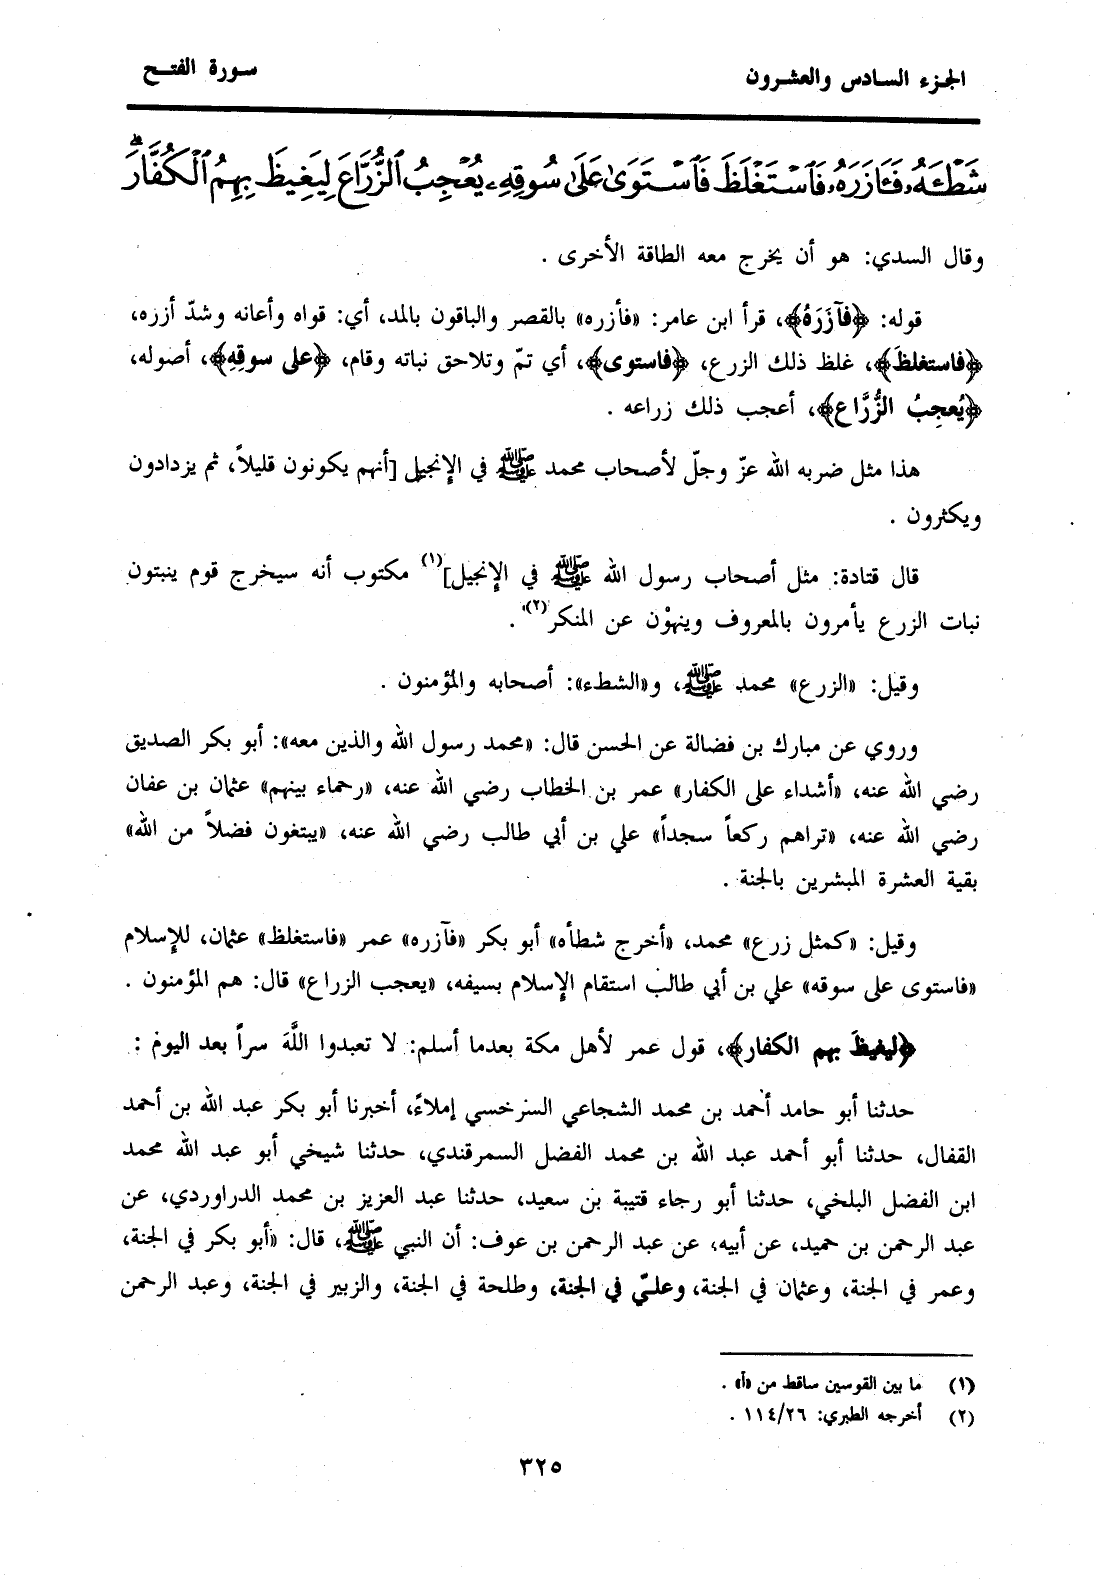 الجزء السادس والعشرون
سورة الفتح
شَطْـَٔهُۥ فَـَٔازَرَهُۥ فَٱسْتَغْلَظَ فَٱسْتَوَىٰ عَلَىٰ سُوقِهِۦ يُعْجِبُ ٱلزُّرَّاعَ لِيَغِيظَ بِهِمُ ٱلْكُفَّارَۗ
وقال السدي: هو أن يخرج معه الطاقة الأخرى .
قوله: ﴿فآزَرَهُ﴾، قرأ ابن عامر: «فأزره» بالقصر والباقون بالمد، أي: قواه وأعانه وشدّ أزره،
﴿فاستغلظَ﴾، غلظ ذلك الزرع، ﴿فاستوى﴾، أي تمّ وتلاحق نباته وقام، ﴿على سوقِهِ﴾، أصوله،
﴿يُعجِبُ الزُّرَّاع﴾، أعجب ذلك زراعه .
هذا مثل ضربه الله عزّ وجلّ لأصحاب محمد ﷺ في الإنجيل [أنهم يكونون قليلاً، ثم يزدادون
ويكثرون .
قال قتادة: مثل أصحاب رسول الله ﷺ في الإنجيل](١) مكتوب أنه سيخرج قوم ينبتون
نبات الزرع يأمرون بالمعروف وينهوْن عن المنكر(٢) .
وقيل: «الزرع» محمد ﷺ، و«الشطء»: أصحابه والمؤمنون .
وروي عن مبارك بن فضالة عن الحسن قال: «محمد رسول الله والذين معه»: أبو بكر الصديق
رضي الله عنه، «أشداء على الكفار» عمر بن الخطاب رضي الله عنه، «رحماء بينهم» عثمان بن عفان
رضي الله عنه، «تراهم ركعاً سجداً» علي بن أبي طالب رضي الله عنه، «يبتغون فضلاً من الله»
بقية العشرة المبشرين بالجنة .
وقيل: «كمثل زرع» محمد، «أخرج شطأه» أبو بكر «فآزره» عمر «فاستغلظ» عثمان، للإسلام
«فاستوى على سوقه» علي بن أبي طالب استقام الإسلام بسيفه، «يعجب الزراع» قال: هم المؤمنون .
﴿ليغيظَ بهم الكفار﴾، قول عمر لأهل مكة بعدما أسلم: لا تعبدوا اللَّهَ سراً بعد اليوم :
حدثنا أبو حامد أحمد بن محمد الشجاعي السرخسي إملاءً، أخبرنا أبو بكر عبد الله بن أحمد
القفال، حدثنا أبو أحمد عبد الله بن محمد الفضل السمرقندي، حدثنا شيخي أبو عبد الله محمد
ابن الفضل البلخي، حدثنا أبو رجاء قتيبة بن سعيد، حدثنا عبد العزيز بن محمد الدراوردي، عن
عبد الرحمن بن حميد، عن أبيه، عن عبد الرحمن بن عوف: أن النبي ﷺ، قال: «أبو بكر في الجنة،
وعمر في الجنة، وعثمان في الجنة، وعليّ في الجنة، وطلحة في الجنة، والزبير في الجنة، وعبد الرحمن
(١) ما بين القوسين ساقط من «أ» .
(٢) أخرجه الطبري: ١١٤/٢٦ .
٣٢٥